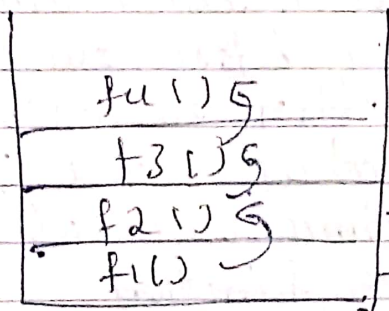 f4()
f3()
f2()
f1()